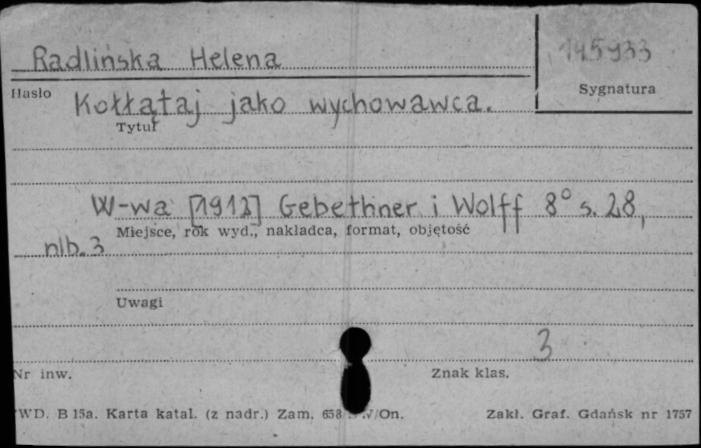 Radlińska Helena
145933
Hasło
Sygnatura
Kołłątaj jako wychowawca.
Tytuł
W-wa [1912] Gebethner i Wolff 8° s. 28,
Miejsce, rok wyd., nakładca, format, objętość
nlb. 3
Uwagi
3
Nr inw.
Znak klas.
WD. B 15a. Karta katal. (z nadr.) Zam. 658 /On.
Zakł. Graf. Gdańsk nr 1757